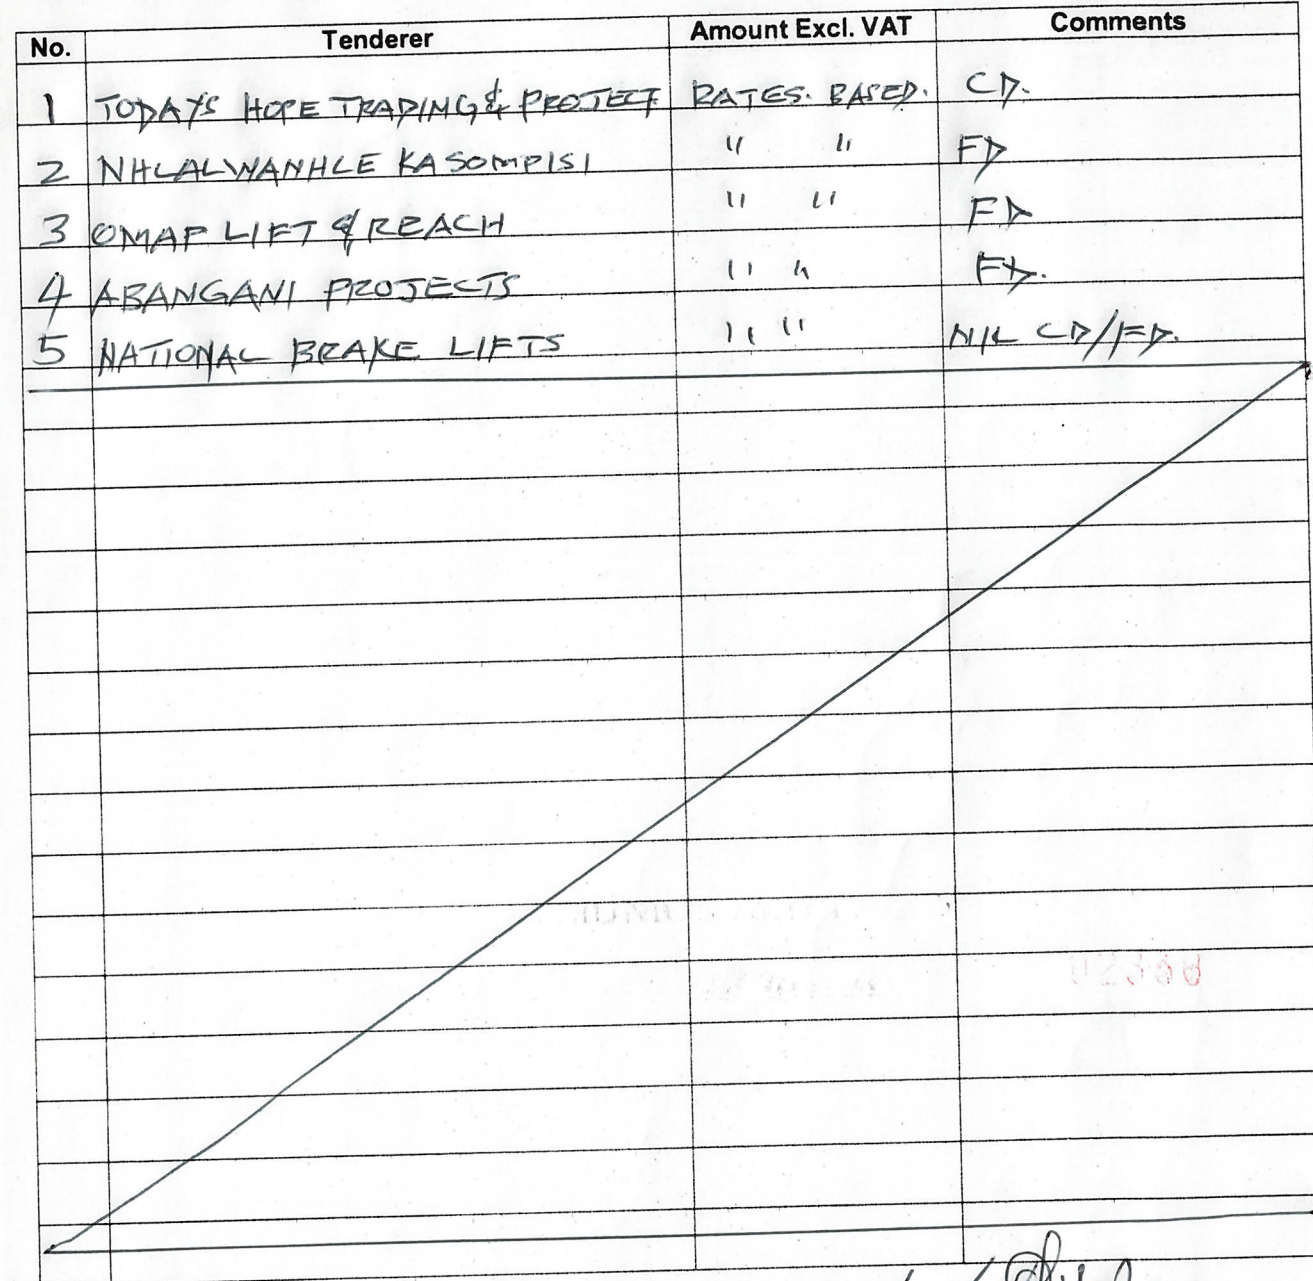 No. Tenderer Amount Excl. VAT Comments
1 TODAYS HOPE TRADING & PROJECT RATES. BASED. CD.
2 NHLALWANHLE KASOMPISI " " FD
3 OMAP LIFT & REACH " " FD
4 ABANGANI PROJECTS " " FD.
5 NATIONAL BRAKE LIFTS " " NIL CD/FD.